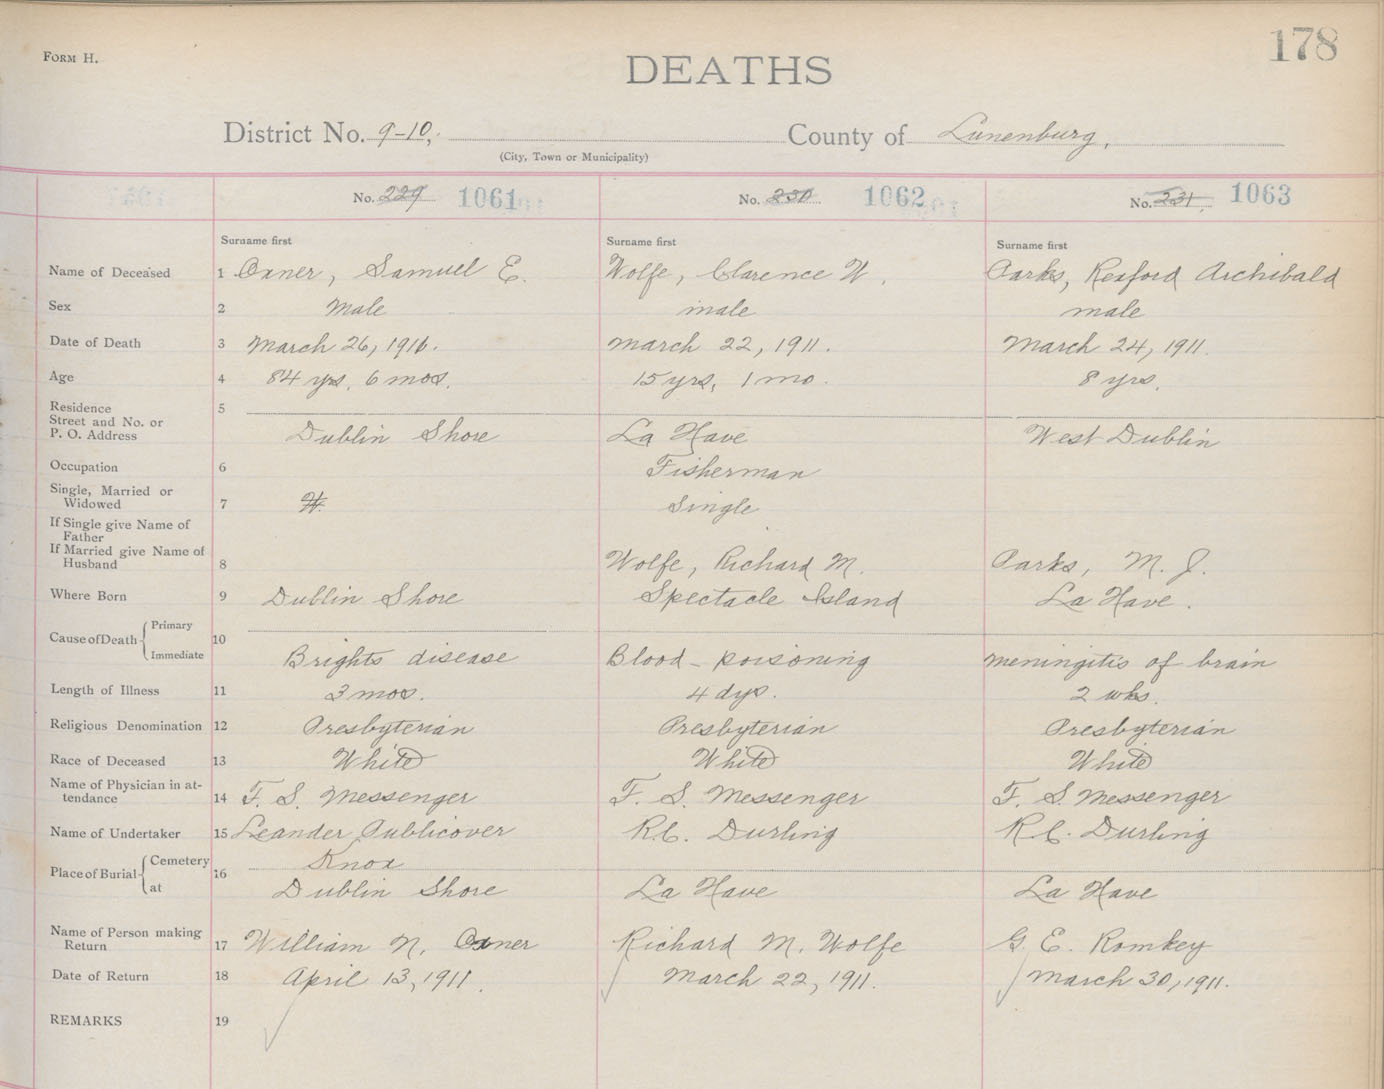 FORM H.
178
DEATHS
District No. 9-10, County of Lunenburg,
(City, Town or Municipality)
No. 229 1061 No. 230 1062 No. 231 1063
Surname first Surname first Surname first
Name of Deceased 1 Oxner, Samuel E. Wolfe, Clarence W. Parks, Rexford Archibald
Sex 2 Male male male
Date of Death 3 March 26, 1911. March 22, 1911. March 24, 1911.
Age 4 84 yrs. 6 mos. 15 yrs, 1 mo. 8 yrs.
Residence 5
Street and No. or
P. O. Address Dublin Shore La Have West Dublin
Occupation 6 Fisherman
Single, Married or
Widowed 7 W. Single
If Single give Name of
Father
If Married give Name of
Husband 8 Wolfe, Richard M. Parks, M. J.
Where Born 9 Dublin Shore Spectacle Island La Have.
Cause of Death Primary 10
Immediate Brights disease Blood-poisoning Meningitis of brain
Length of Illness 11 3 mos. 4 dys. 2 wks.
Religious Denomination 12 Presbyterian Presbyterian Presbyterian
Race of Deceased 13 White White White
Name of Physician in at-
tendance 14 F. S. Messenger F. S. Messenger F. S. Messenger
Name of Undertaker 15 Leander Publicover R.C. Durling R.C. Durling
Place of Burial Cemetery 16 Knox
at Dublin Shore La Have La Have
Name of Person making
Return 17 William N. Oxner Richard M. Wolfe G. E. Romkey
Date of Return 18 April 13, 1911. March 22, 1911. March 30, 1911.
REMARKS 19